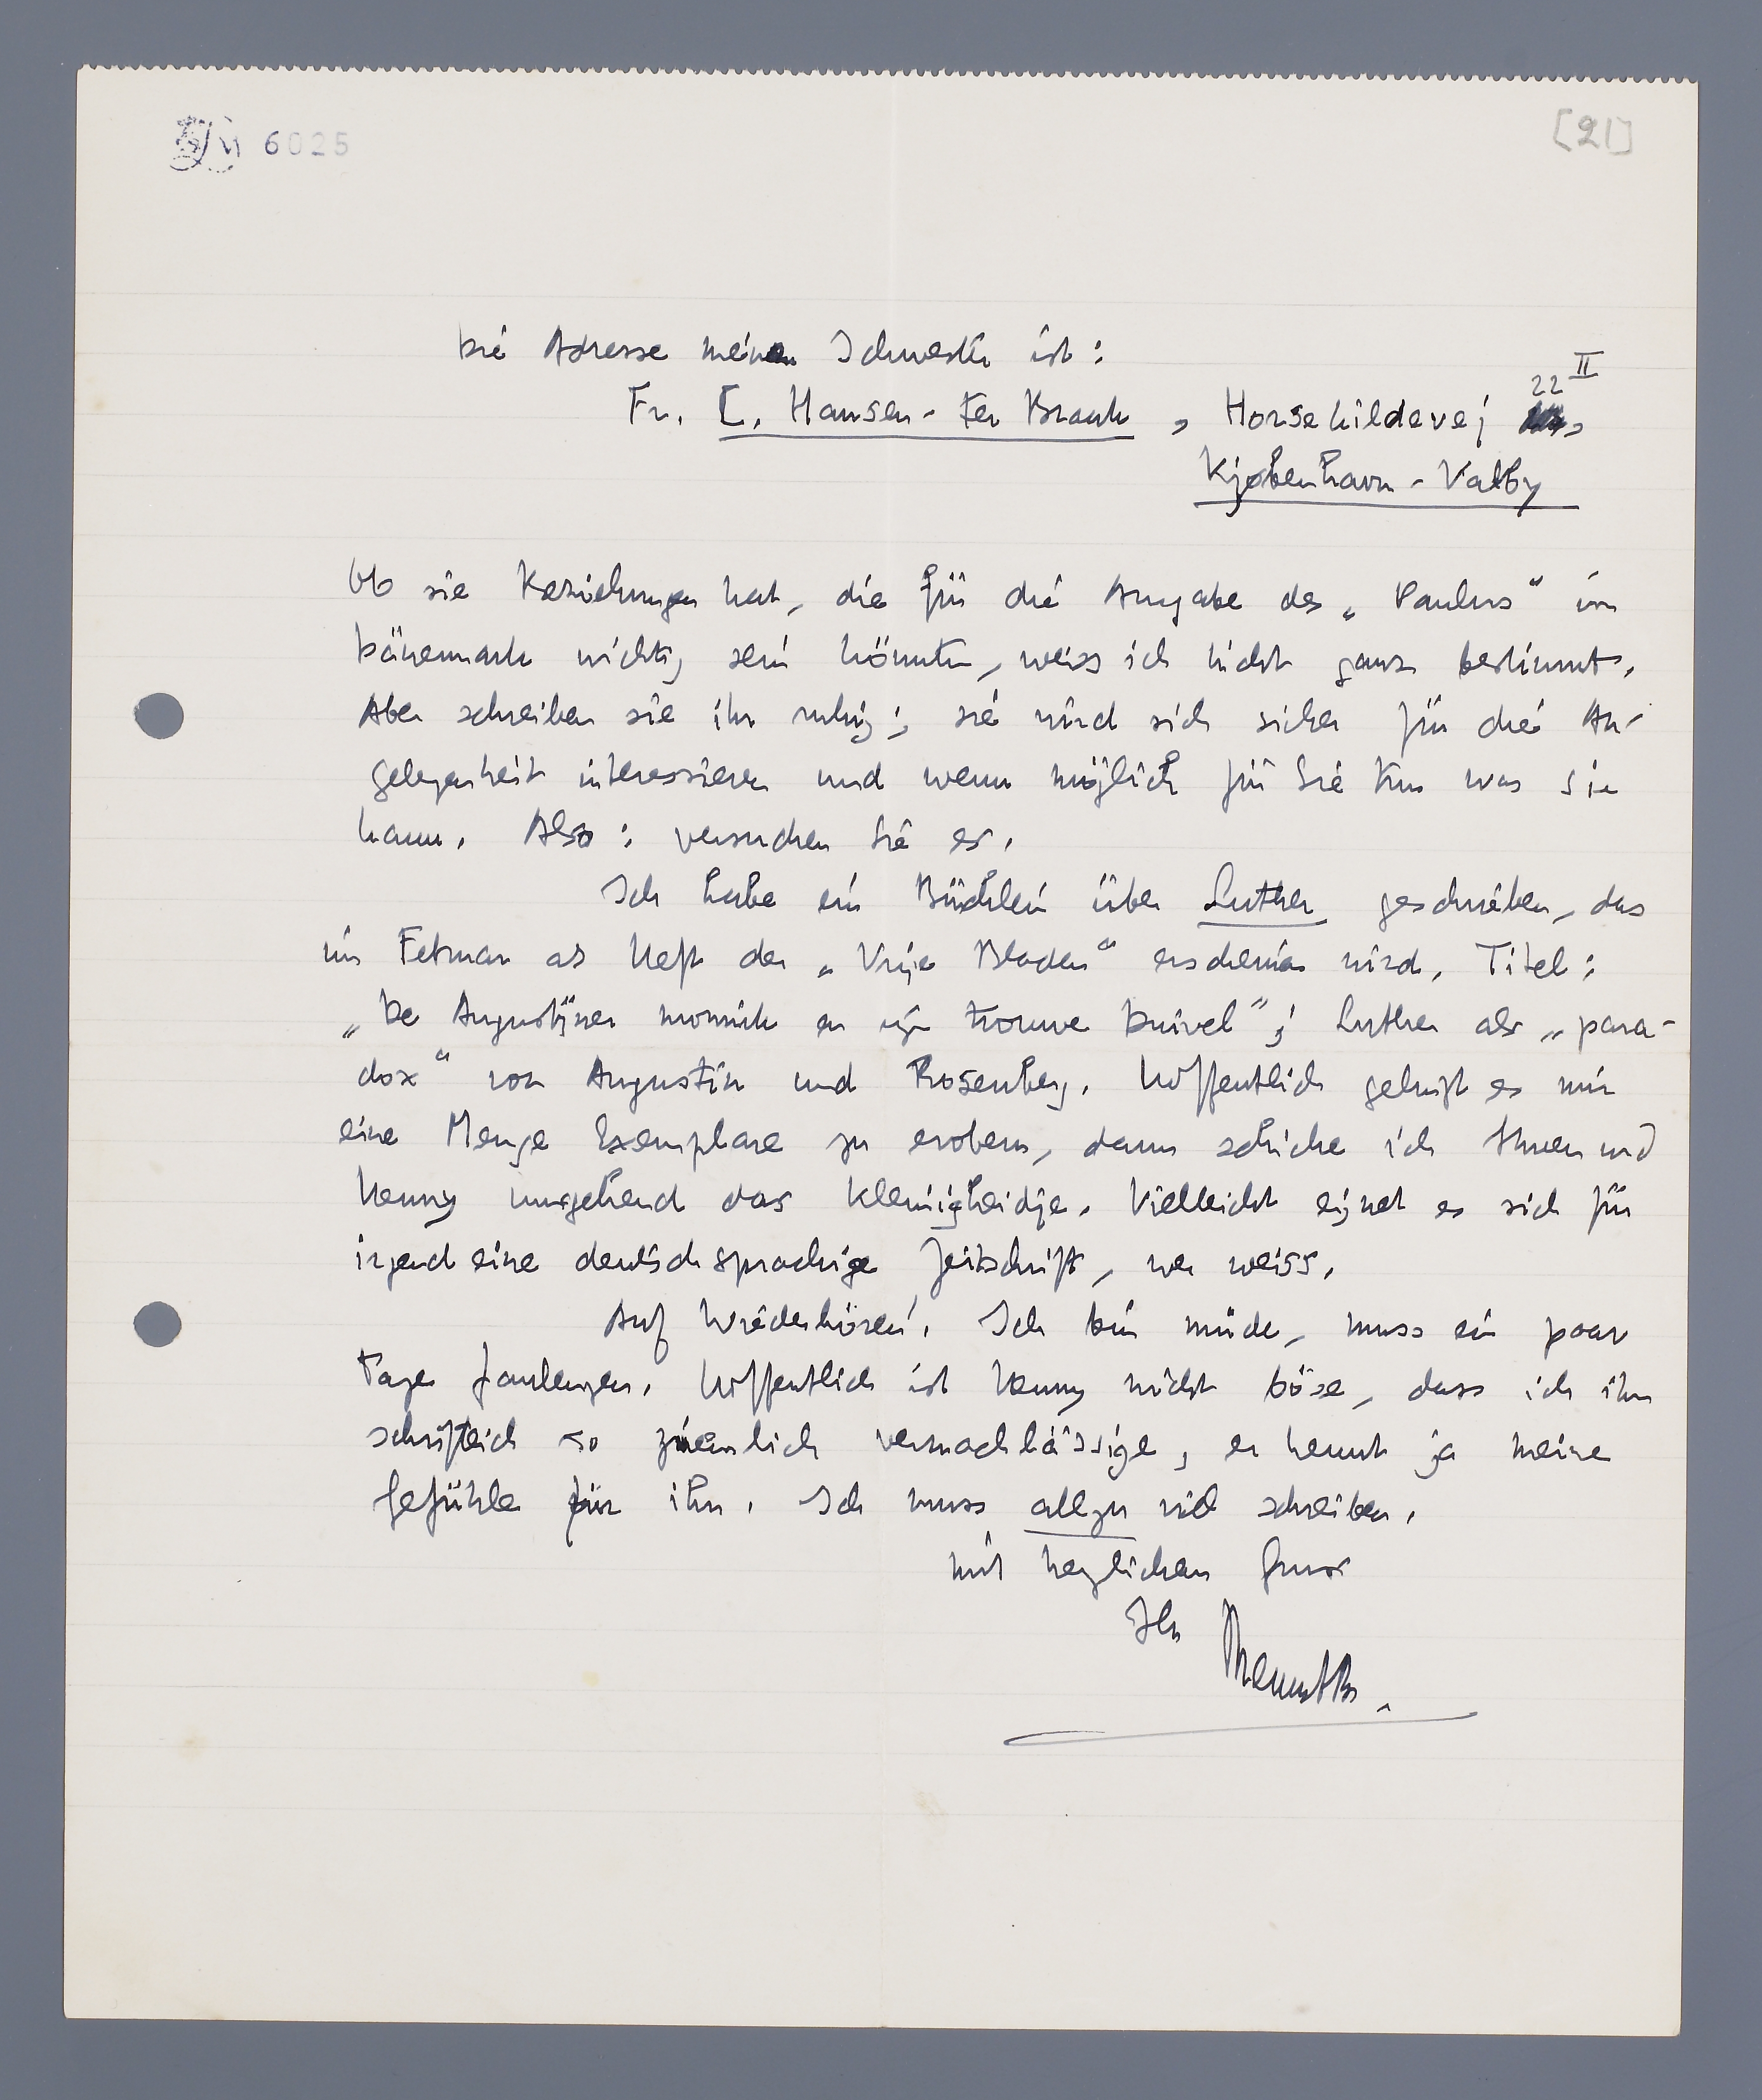 6025
[21]
Die Adresse meiner Schwester ist:
22 II
Fr. E. Hansen-Ter Braak, Horsekildevej
Kjøbenhavn-Valby
Ob sie Beziehungen hat, die für die Ausgabe des „Paulus" in
Dänemark wichtig sein könnten, weiss ich nicht ganz bestimmt.
Aber schreiben sie ihr ruhig; sie wird sich sicher für die An-
gelegenheit interessieren und wenn möglich für Sie tun was sie
kann. Also: versuchen Sie es.
Ich habe ein Büchlein über Luther geschrieben, das
im Februar als Heft der „Vrije Bladen" erscheinen wird. Titel:
„De Augustijner monnik en zijn trouwe duivel"; Luther als „para-
dox" von Augustin und Rosenberg. Hoffentlich gelingt es mir
eine Menge Exemplare zu erobern, dann schicke ich Ihnen und
Henny umgehend das kleinigheidje. Vielleicht eignet es sich für
irgend eine deutschsprachige Zeitschrift, wer weiss.
Auf Wiederhören! Ich bin müde, muss ein paar
Tage faulenzen. Hoffentlich ist Henny nicht böse, dass ich ihn
schriftlich so ziemlich vernachlässige, er kennt ja meine
Gefühle für ihn. Ich muss allzu viel schreiben.
Mit herzlichen Gruss
Ihr
MennotB.